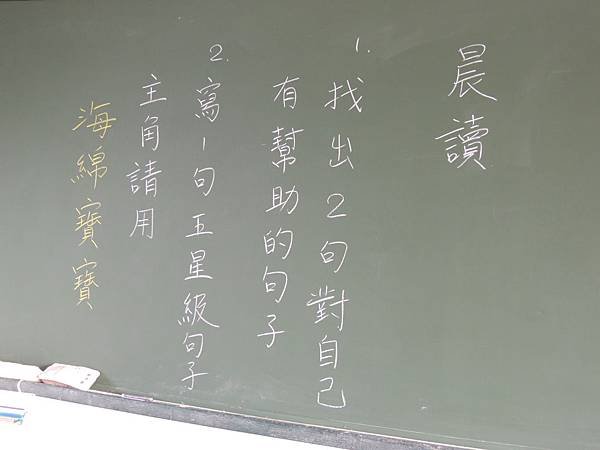 晨讀
1. 找出2句對自己
有幫助的句子
2. 寫1句五星級句子
主角請用
海綿寶寶